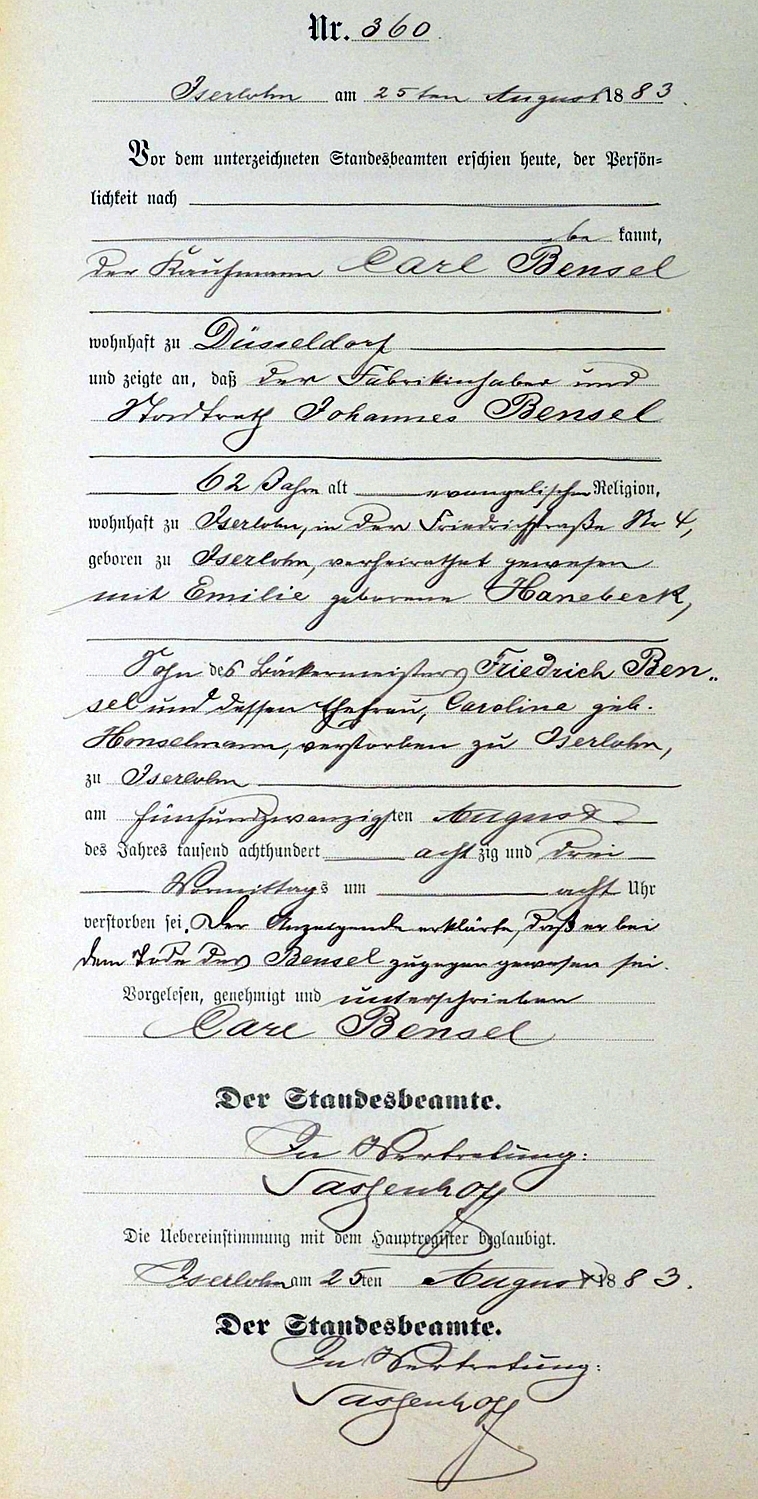 Nr. 360.
Iserlohn am 25ten August 1883.
Vor dem unterzeichneten Standesbeamten erschien heute, der Persön=
lichkeit nach
be kannt,
der Kaufmann Carl Bensel
wohnhaft zu Düsseldorf
und zeigte an, daß der Fabrikinhaber und
Stadtrath Johannes Bensel
62 Jahre alt evangelischer Religion,
wohnhaft zu Iserlohn, in der Friedrichstraße Nr 4,
geboren zu Iserlohn, verheirathet gewesen
mit Emilie geborene Hanebeck,
Sohn des Bäckermeisters Friedrich Ben„
sel und dessen Ehefrau, Caroline geb.
Honselmann, verstorben zu Iserlohn,
zu Iserlohn
am fünfundzwanzigsten August
des Jahres tausend achthundert achtzig und drei
Vormittags um acht Uhr
verstorben sei. Der Anzeigende erklärte, daß er bei
dem Tode des Bensel zugegen gewesen sei.
Vorgelesen, genehmigt und unterschrieben
Carl Bensel
Der Standesbeamte.
In Vertretung:
Die Uebereinstimmung mit dem Hauptregister beglaubigt.
Iserlohn am 25ten August 1883.
Der Standesbeamte.
In Vertretung: